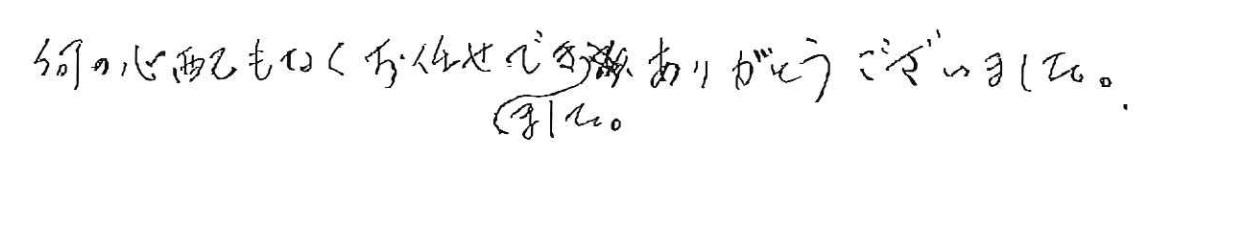 何の心配もなくお任せでき ありがとうございました。
ました。